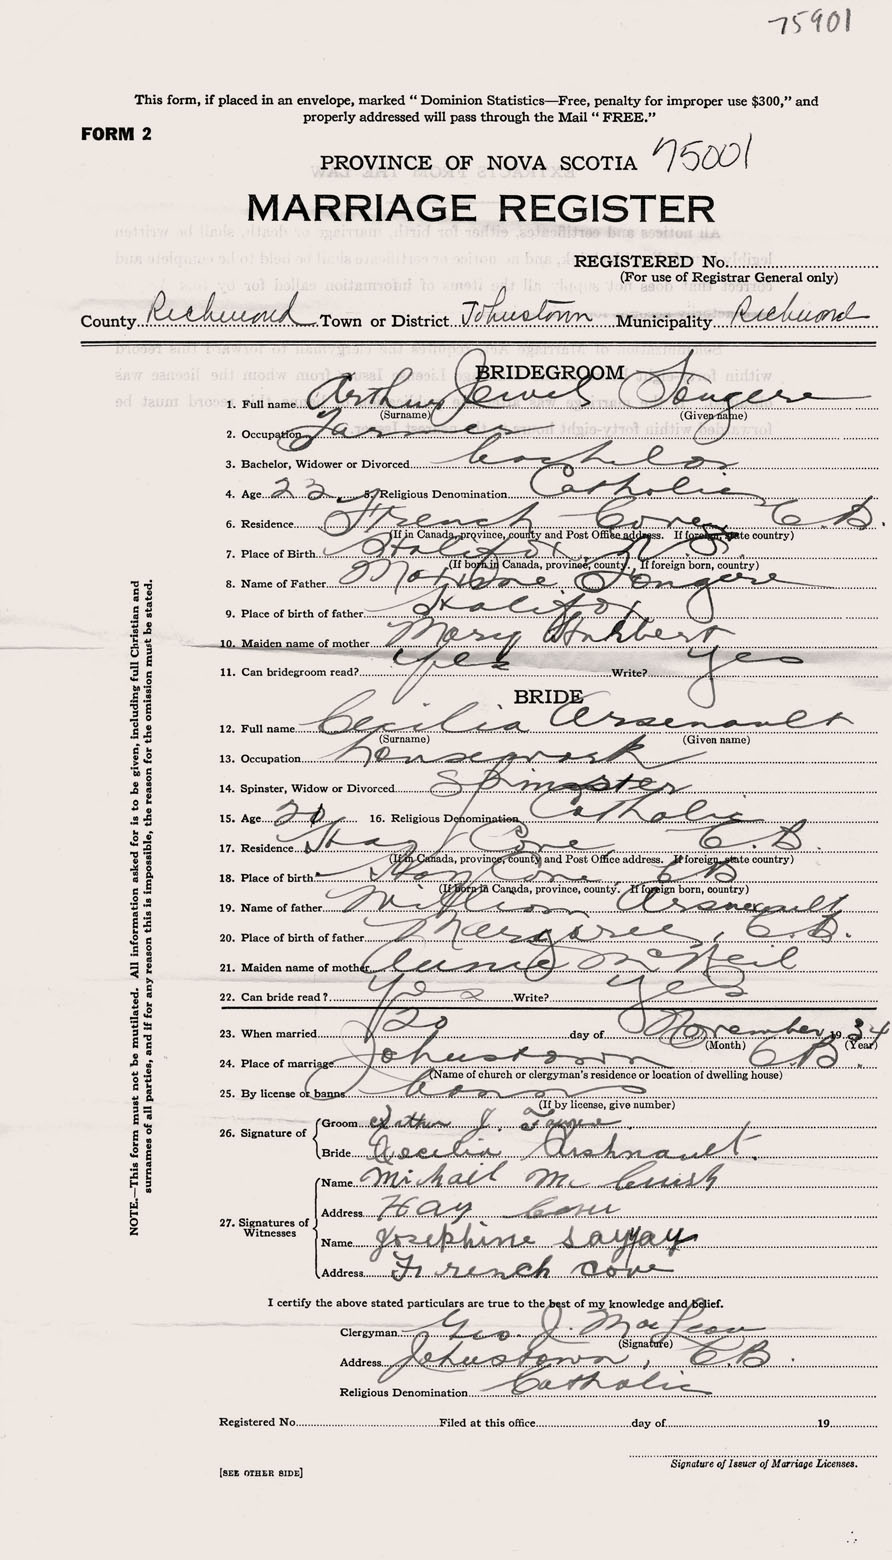 75901
This form, if placed in an envelope, marked “ Dominion Statistics—Free, penalty for improper use $300,” and
properly addressed will pass through the Mail “ FREE.”
FORM 2
PROVINCE OF NOVA SCOTIA 75001
MARRIAGE REGISTER
REGISTERED No.
(For use of Registrar General only)
County Richmond Town or District Johnstown Municipality Richmond
BRIDEGROOM
1. Full name Arthur Fougere
(Surname) (Given name)
2. Occupation Farmer
3. Bachelor, Widower or Divorced bachelor
4. Age 23 5. Religious Denomination Catholic
6. Residence French Cove C.B.
(If in Canada, province, county and Post Office address. If foreign, state country)
7. Place of Birth Halifax, N.S.
(If born in Canada, province, county. If foreign born, country)
8. Name of Father Fougere
9. Place of birth of father Halifax
10. Maiden name of mother Mary
11. Can bridegroom read? yes Write? yes
BRIDE
12. Full name Cecilia Arsenault
(Surname) (Given name)
13. Occupation housework
14. Spinster, Widow or Divorced Spinster
15. Age 20 16. Religious Denomination Catholic
17. Residence Hay Cove C.B.
(If in Canada, province, county and Post Office address. If foreign, state country)
18. Place of birth Hay Cove, CB
(If born in Canada, province, county. If foreign born, country)
19. Name of father William Arsenault
20. Place of birth of father Margaree, C.B.
21. Maiden name of mother Annie McNeil
22. Can bride read ? yes Write? yes
23. When married 20 day of November 1934
(Month) (Year)
24. Place of marriage Johnstown C.B.
(Name of church or clergyman’s residence or location of dwelling house)
25. By license or banns banns
(If by license, give number)
26. Signature of
Groom Arthur J.
Bride Cecilia Arshnault.
27. Signatures of Witnesses
Name Michail Mc Cuish
Address Hay Cove
Name Josephine
Address French cove
I certify the above stated particulars are true to the best of my knowledge and belief.
Clergyman Geo. J. MacLean
(Signature)
Address Johnstown, CB.
Religious Denomination Catholic
Registered No. Filed at this office day of 19
Signature of Issuer of Marriage Licenses.
[SEE OTHER SIDE]
NOTE.—This form must not be mutilated. All information asked for is to be given, including full Christian and
surnames of all parties, and if for any reason this is impossible, the reason for the omission must be stated.